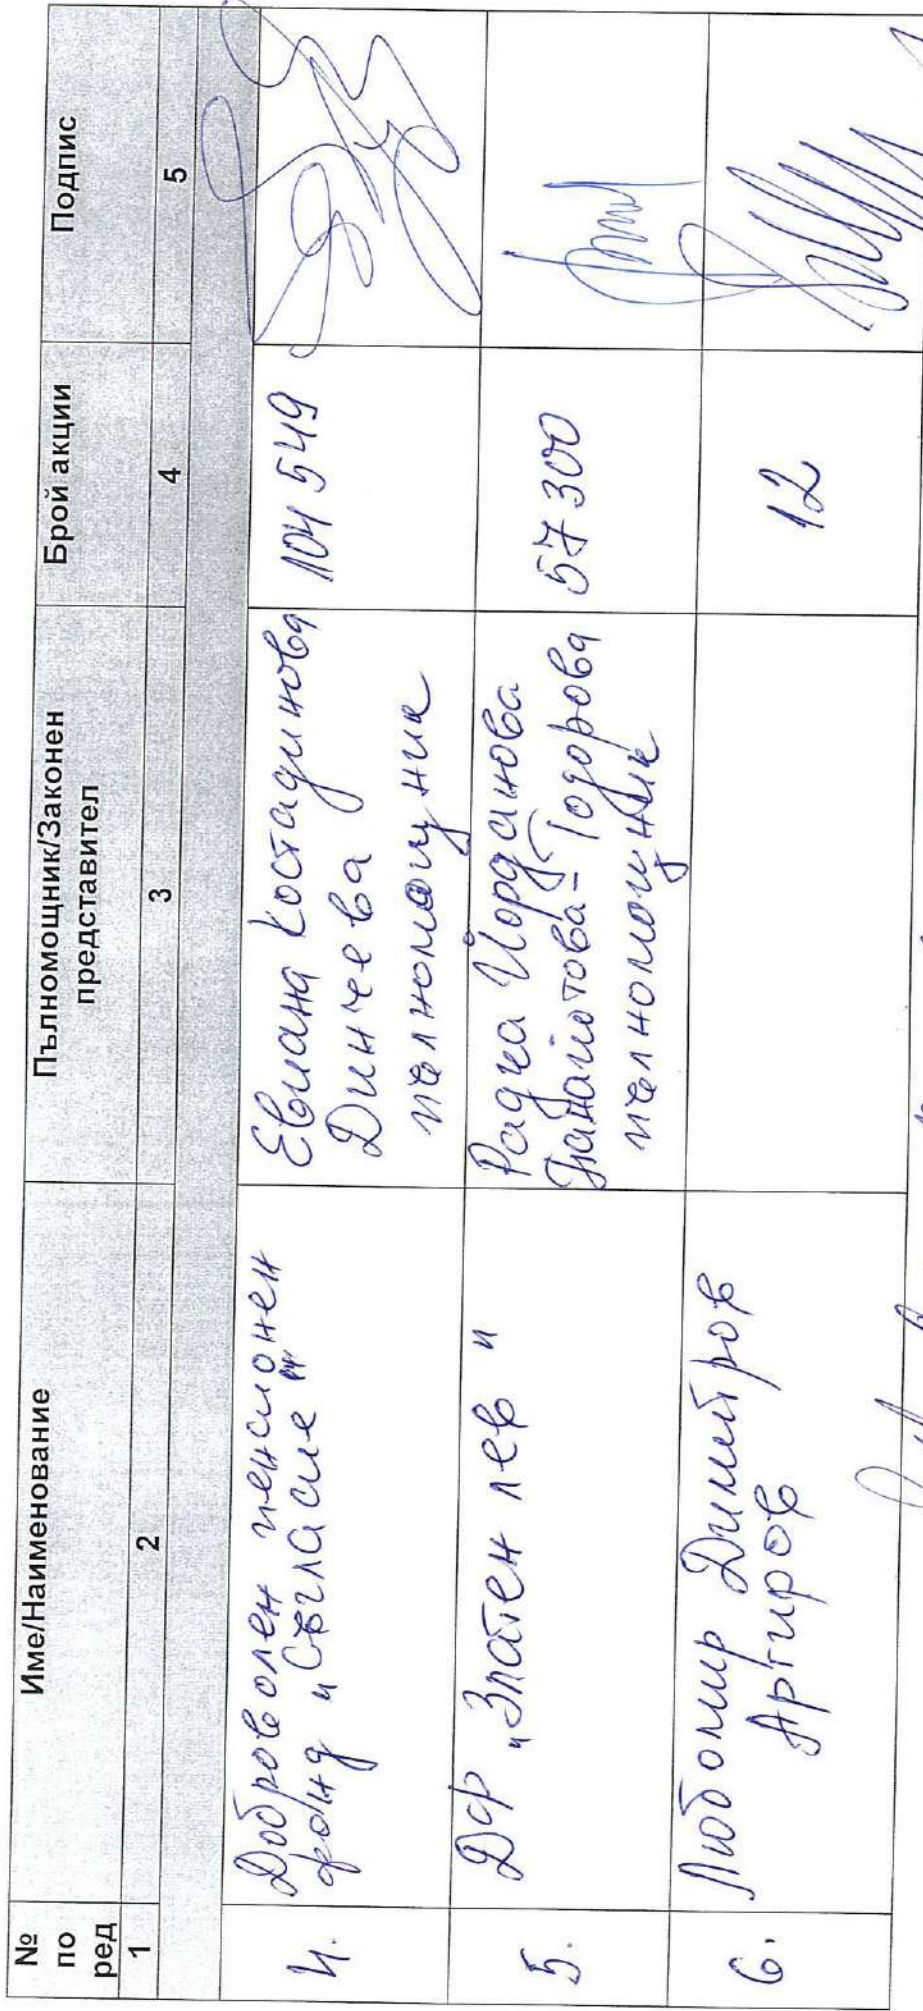 № по ред
Име/Наименование
Пълномощник/Законен представител
Брой акции
Подпис
1
2
3
4
5
4.
Доброволен пенсионен
фонд „Съгласие"
Евлана Костадинова
Динчева
пълномощник
104 549
5.
ДФ „Златен лев"
Радка Йорданова
Панайотова-Тодорова
пълномощник
57 300
6.
Любомир Димитров
Аргиров
12